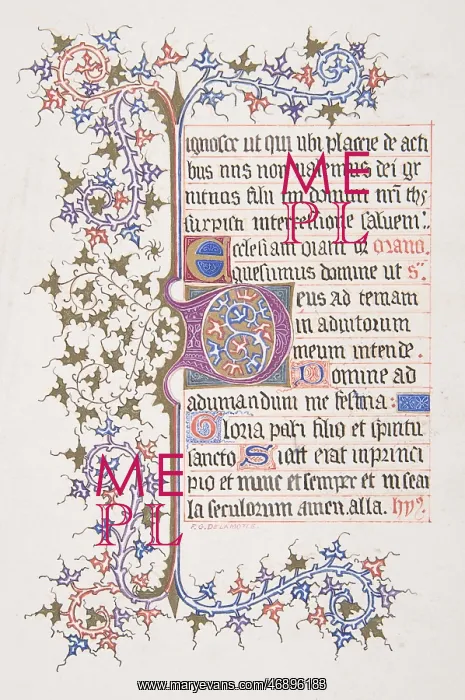 ignosce ut qui ubi placere de acti
bus nris non valemus dei gr
nitricis filii tui domini nr̄i ihs
xpisti intercessione salvemi:.
Ecclesiam oram
quesumus domine ut
Deus ad temam
in adiutorium
meum intende.
Domine ad
adiuuandum me festina:
Gloria patri filio et spiritu
sancto Sicut erat in princi
pio et nunc et semper et in secu
la seculorum amen.alla. hy9.
F.G.DELAMOTTE.
ME
PL
ME
PL
www.maryevans.com/46896183